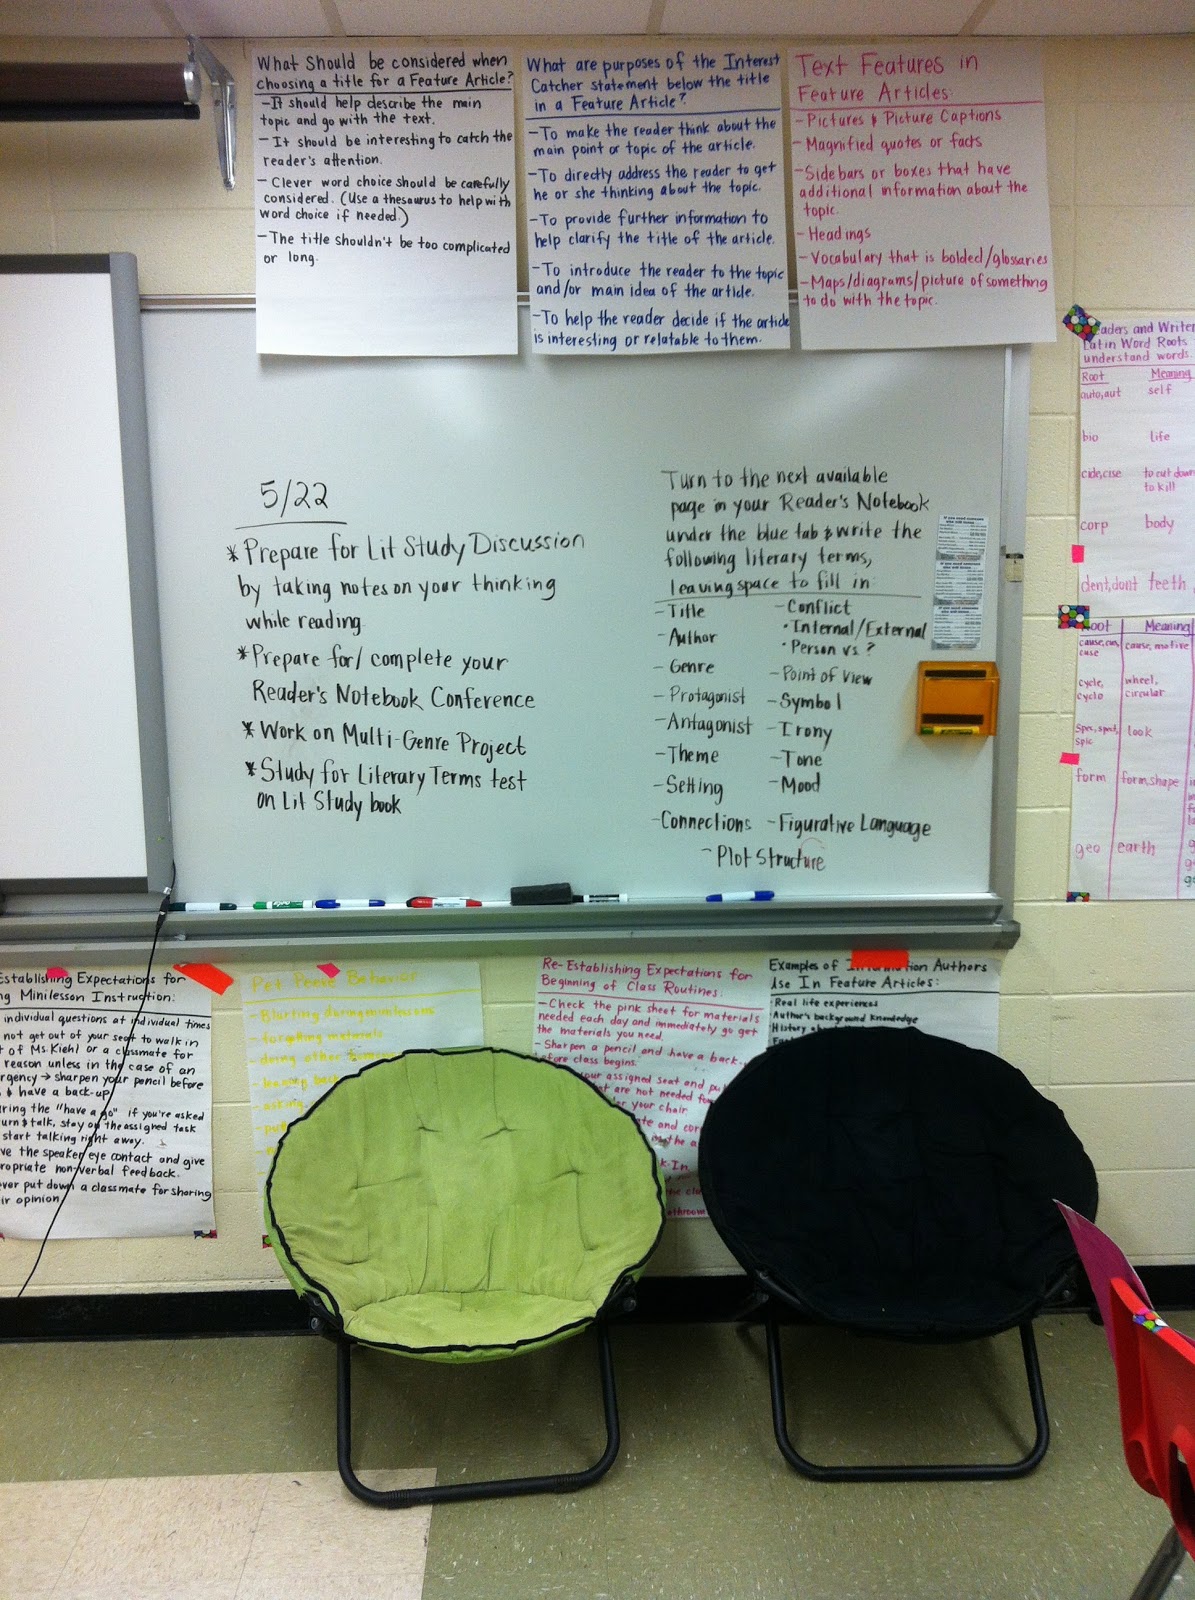 What Should be considered when
choosing a title for a Feature Article?
-It should help describe the main
topic and go with the text.
-It should be interesting to catch the
reader's attention.
-Clever word choice should be carefully
considered. (Use a thesaurus to help with
word choice if needed.)
-The title shouldn't be too complicated
or long.
What are purposes of the Interest
Catcher statement below the title
in a Feature Article?
-To make the reader think about the
main point or topic of the article.
-To directly address the reader to get
he or she thinking about the topic.
-To provide further information to
help clarify the title of the article.
-To introduce the reader to the topic
and/or main idea of the article.
-To help the reader decide if the article
is interesting or relatable to them.
Text Features in
Feature Articles:
-Pictures & Picture Captions
-Magnified quotes or facts
-Sidebars or boxes that have
additional information about the
topic.
-Headings
-Vocabulary that is bolded/glossaries
-Maps/diagrams/picture of something
to do with the topic.
5/22
*Prepare for Lit Study Discussion
by taking notes on your thinking
while reading
*Prepare for/complete your
Reader's Notebook Conference
*Work on Multi-Genre Project
*Study for Literary Terms test
on Lit Study book
Turn to the next available
page in your Reader's Notebook
under the blue tab & write the
following literary terms,
leaving space to fill in:
-Title
-Author
-Genre
-Protagonist
-Antagonist
-Theme
-Setting
-Connections
-Conflict
•Internal/External
•Person vs. ?
-Point of View
-Symbol
-Irony
-Tone
-Mood
-Figurative Language
-Plot Structure
aders and Writer
Latin Word Roots
understand words.
Root Meaning
auto, aut self
bio life
cide, cise to cut down
to kill
corp body
dent, dont teeth
oot Meaning
cause, cus, cause, motive
cuse
cycle, wheel,
cyclo circular
spec, spect, look
spic
form form, shape
geo earth
Establishing Expectations for
ng Minilesson Instruction:
individual questions at individual times
not get out of your seat to walk in
t of Ms Kiehl or a classmate for
reason unless in the case of an
rgency → sharpen your pencil before
& have a back-up
ring the "have a go" if you're asked
urn & talk, stay on the assigned task
start talking right away.
ve the speaker eye contact and give
ropriate non-verbal feedback.
ever put down a classmate for sharing
ir opinion.
Pet Peeve Behavior
-Blurting during minilessons
-forgetting materials
-doing other
Re-Establishing Expectations for
Beginning of Class Routines:
-Check the pink sheet for materials
needed each day and immediately go get
the materials you need
-Sharpen a pencil and have a back-
efore class begins.
our assigned seat and pu
at are not needed fo
er your chair
Examples of Information Authors
Use In Feature Articles:
•Real life experiences
•Author's background knowledge
•History